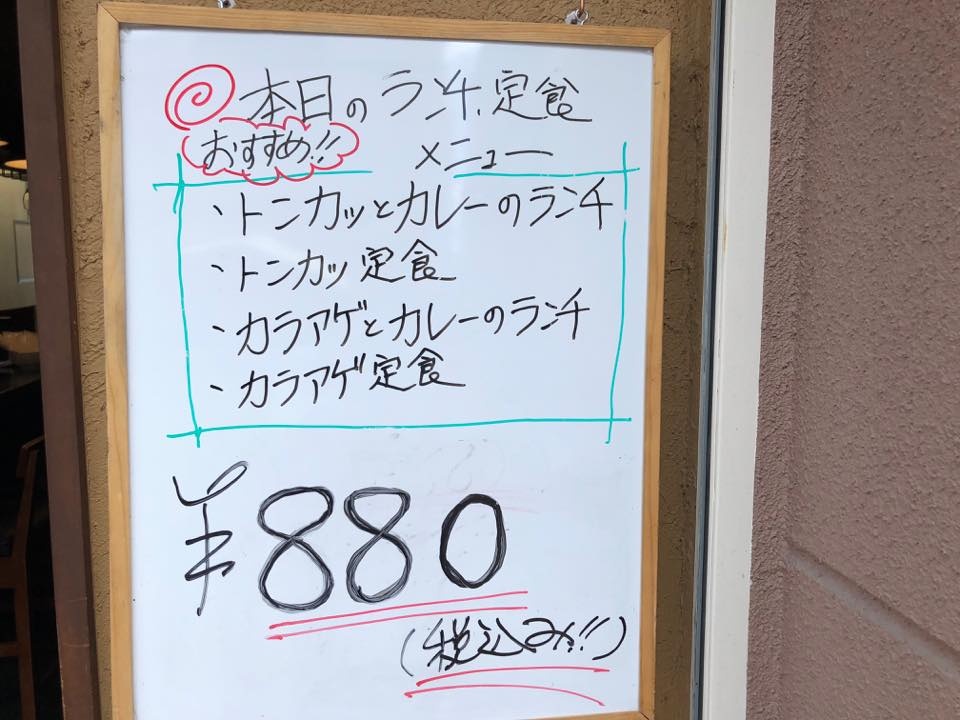 本日のランチ定食
おすすめ!! メニュー
・トンカツとカレーのランチ
・トンカツ定食
・カラアゲとカレーのランチ
・カラアゲ定食
¥880
(税込み!!)